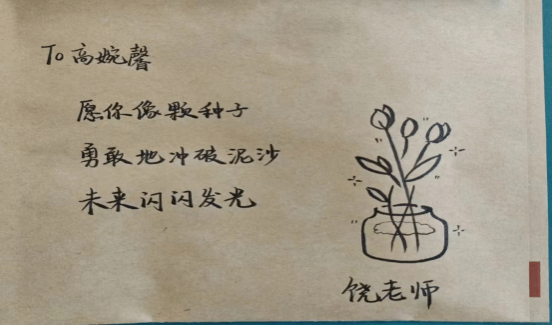 To 高婉馨
愿你像颗种子
勇敢地冲破泥沙
未来闪闪发光
饶老师